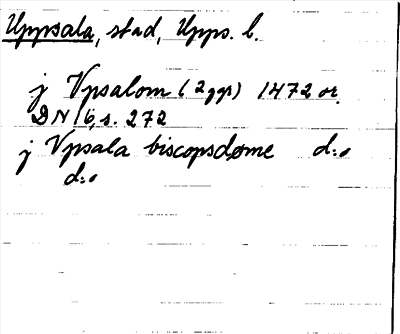 Uppsala, stad, Upps. l.
j Vpsalom (2 ggr) 1472 or.
DN 16, s. 272
j Vpsala biscopsdøme d:o
d:o